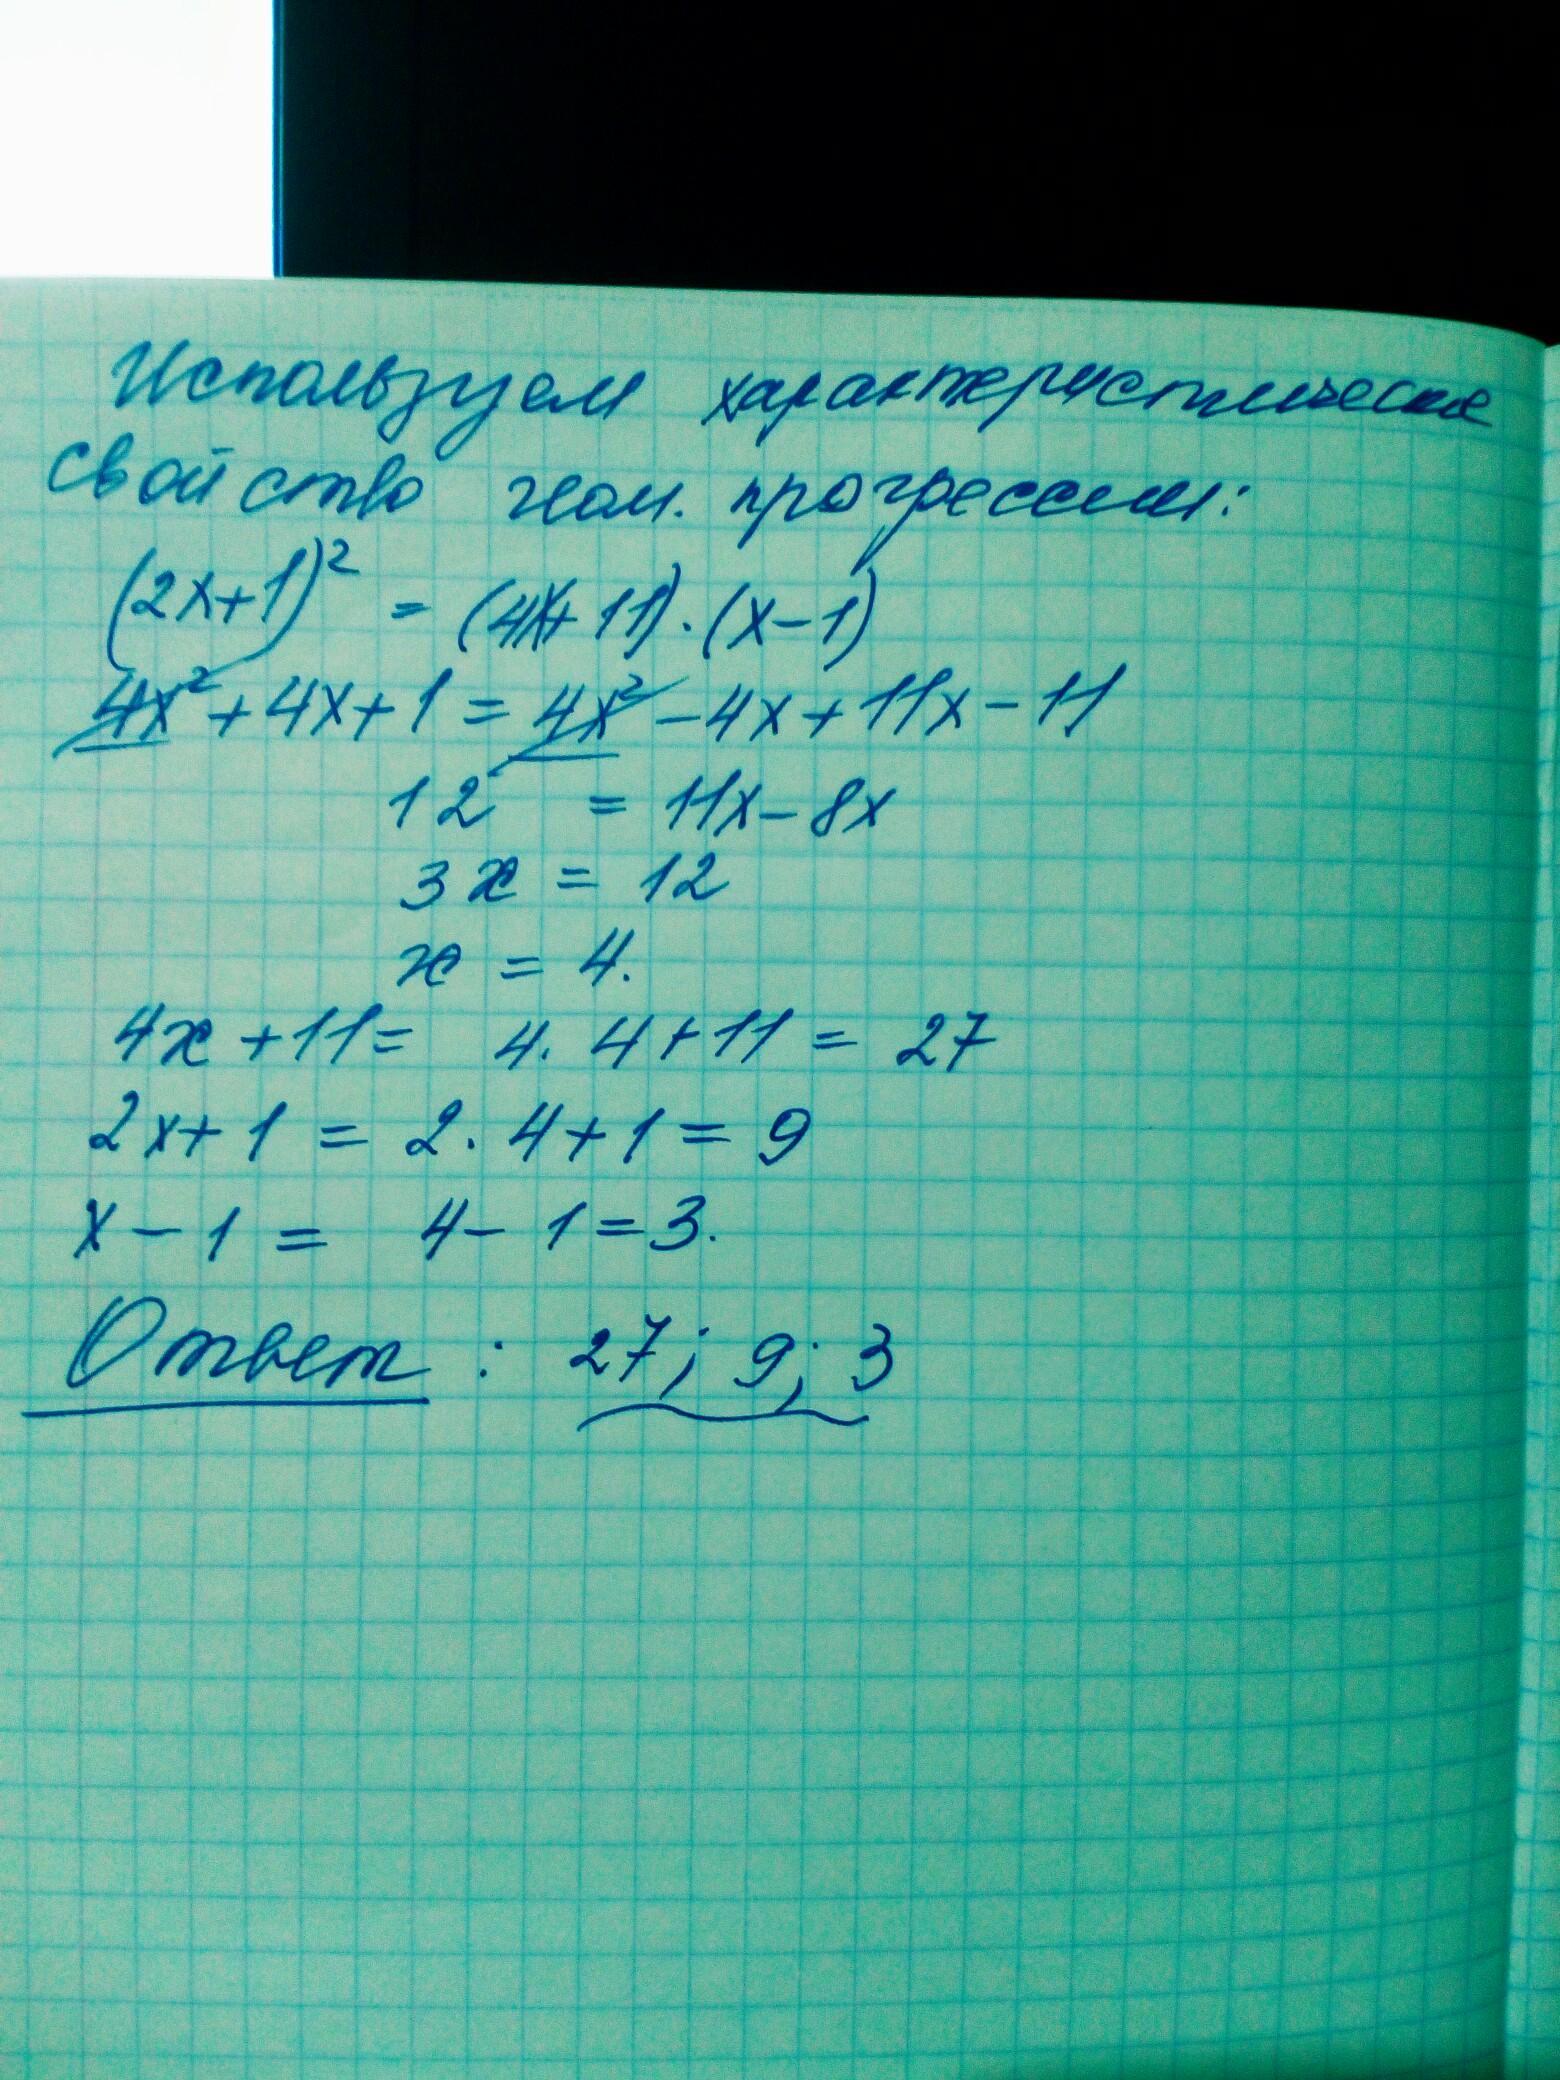 Используем характеристическое
свойство геом. прогрессии:
(2x+1)² = (4x+11)·(x-1)
4x²+4x+1=4x²-4x+11x-11
12 = 11x-8x
3x = 12
x = 4.
4x+11= 4·4+11=27
2x+1 = 2·4+1=9
x-1 = 4-1=3.
Ответ: 27; 9; 3